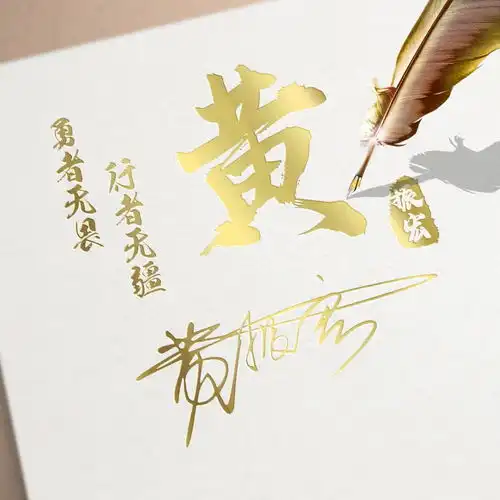 黄
振宏
行者无疆
勇者无畏
黄振宏